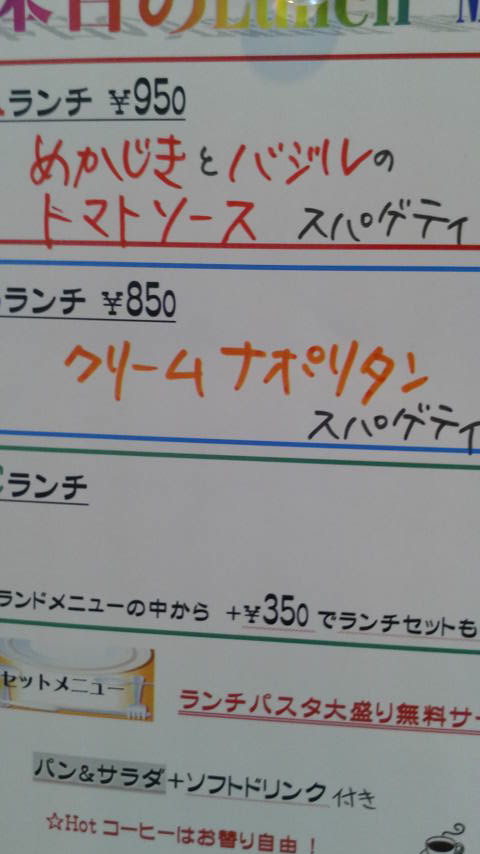 本日のLunch M
ランチ ¥950
めかじきとバジルの
トマトソース スパゲティ
ランチ ¥850
クリームナポリタン
スパゲティ
Cランチ
ランドメニューの中から +¥350でランチセットも
セットメニュー
ランチパスタ大盛り無料サー
パン&サラダ+ソフトドリンク付き
☆Hotコーヒーはお替り自由！